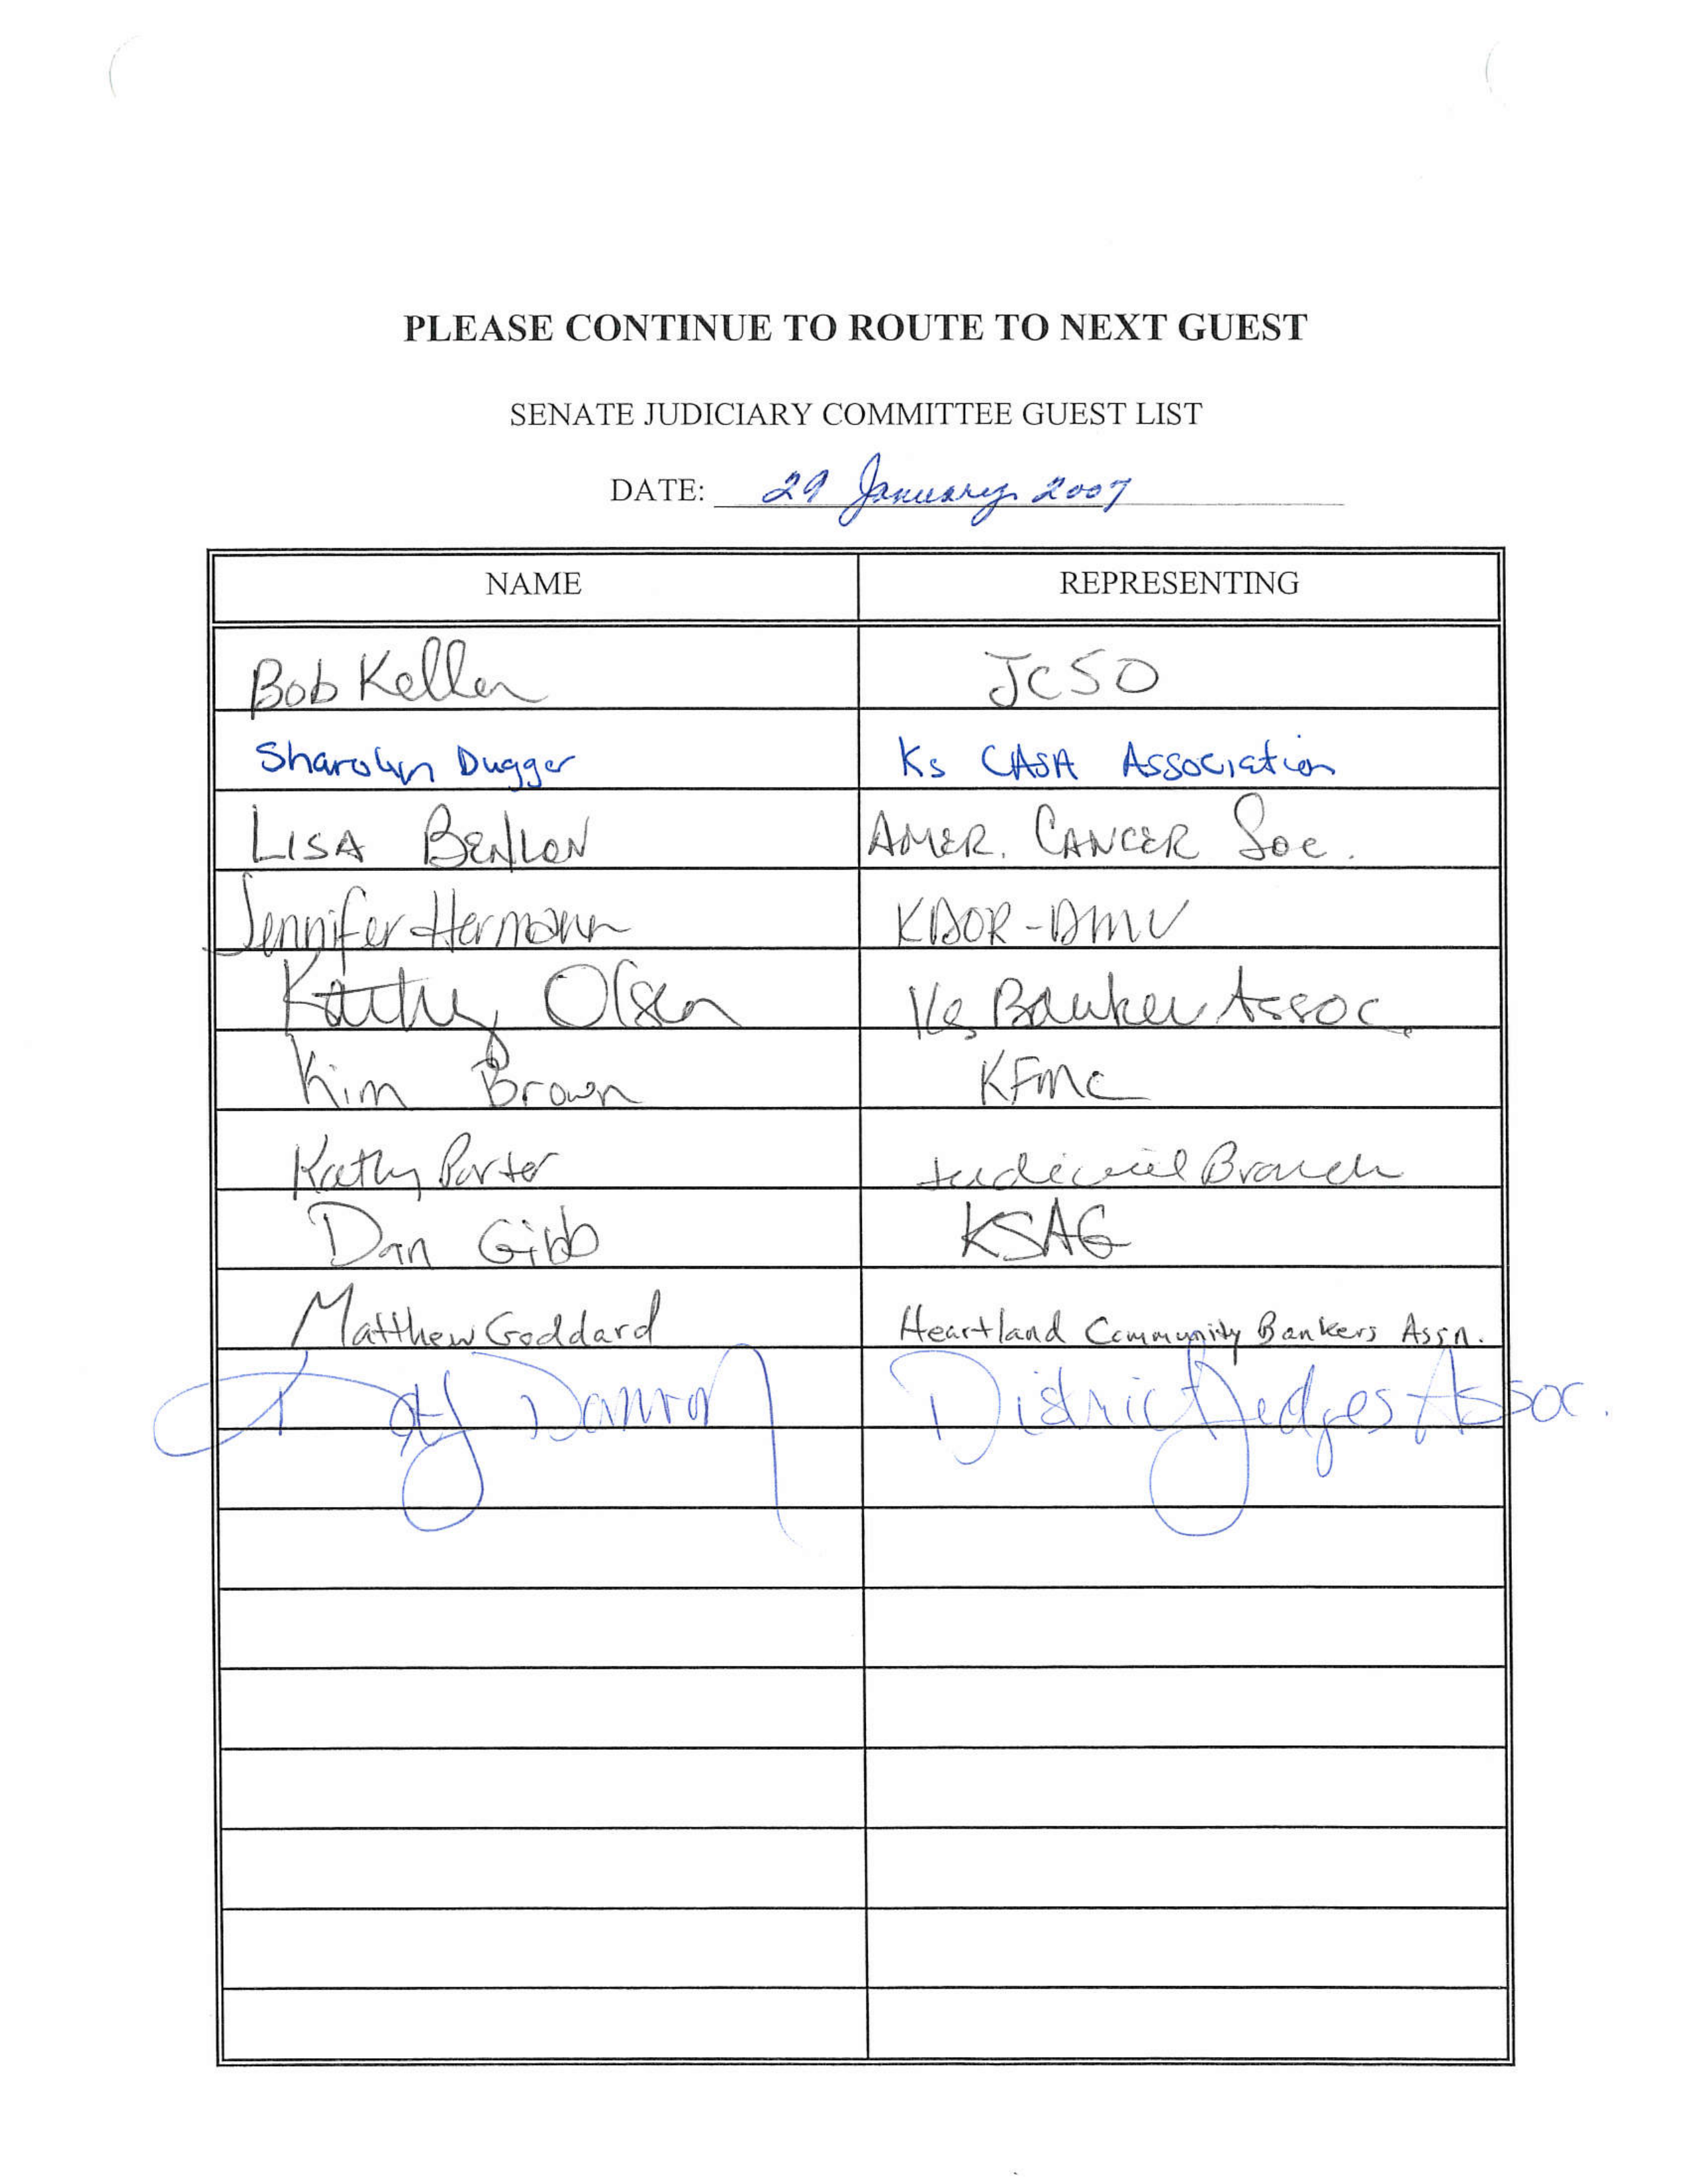 PLEASE CONTINUE TO ROUTE TO NEXT GUEST
SENATE JUDICIARY COMMITTEE GUEST LIST
DATE: 29 January 2007
NAME REPRESENTING
Bob Keller JCSO
Sharolyn Dugger Ks CASA Association
LISA BENLON AMER. CANCER Soc.
Jennifer Hermann KDOR-DMV
Kathy Olsen Ks Banker Assoc.
Kim Brown KFMC
Kathy Porter Judicial Branch
Dan Gibb KSAG
Matthew Goddard Heartland Community Bankers Assn.
District Judges Assoc.